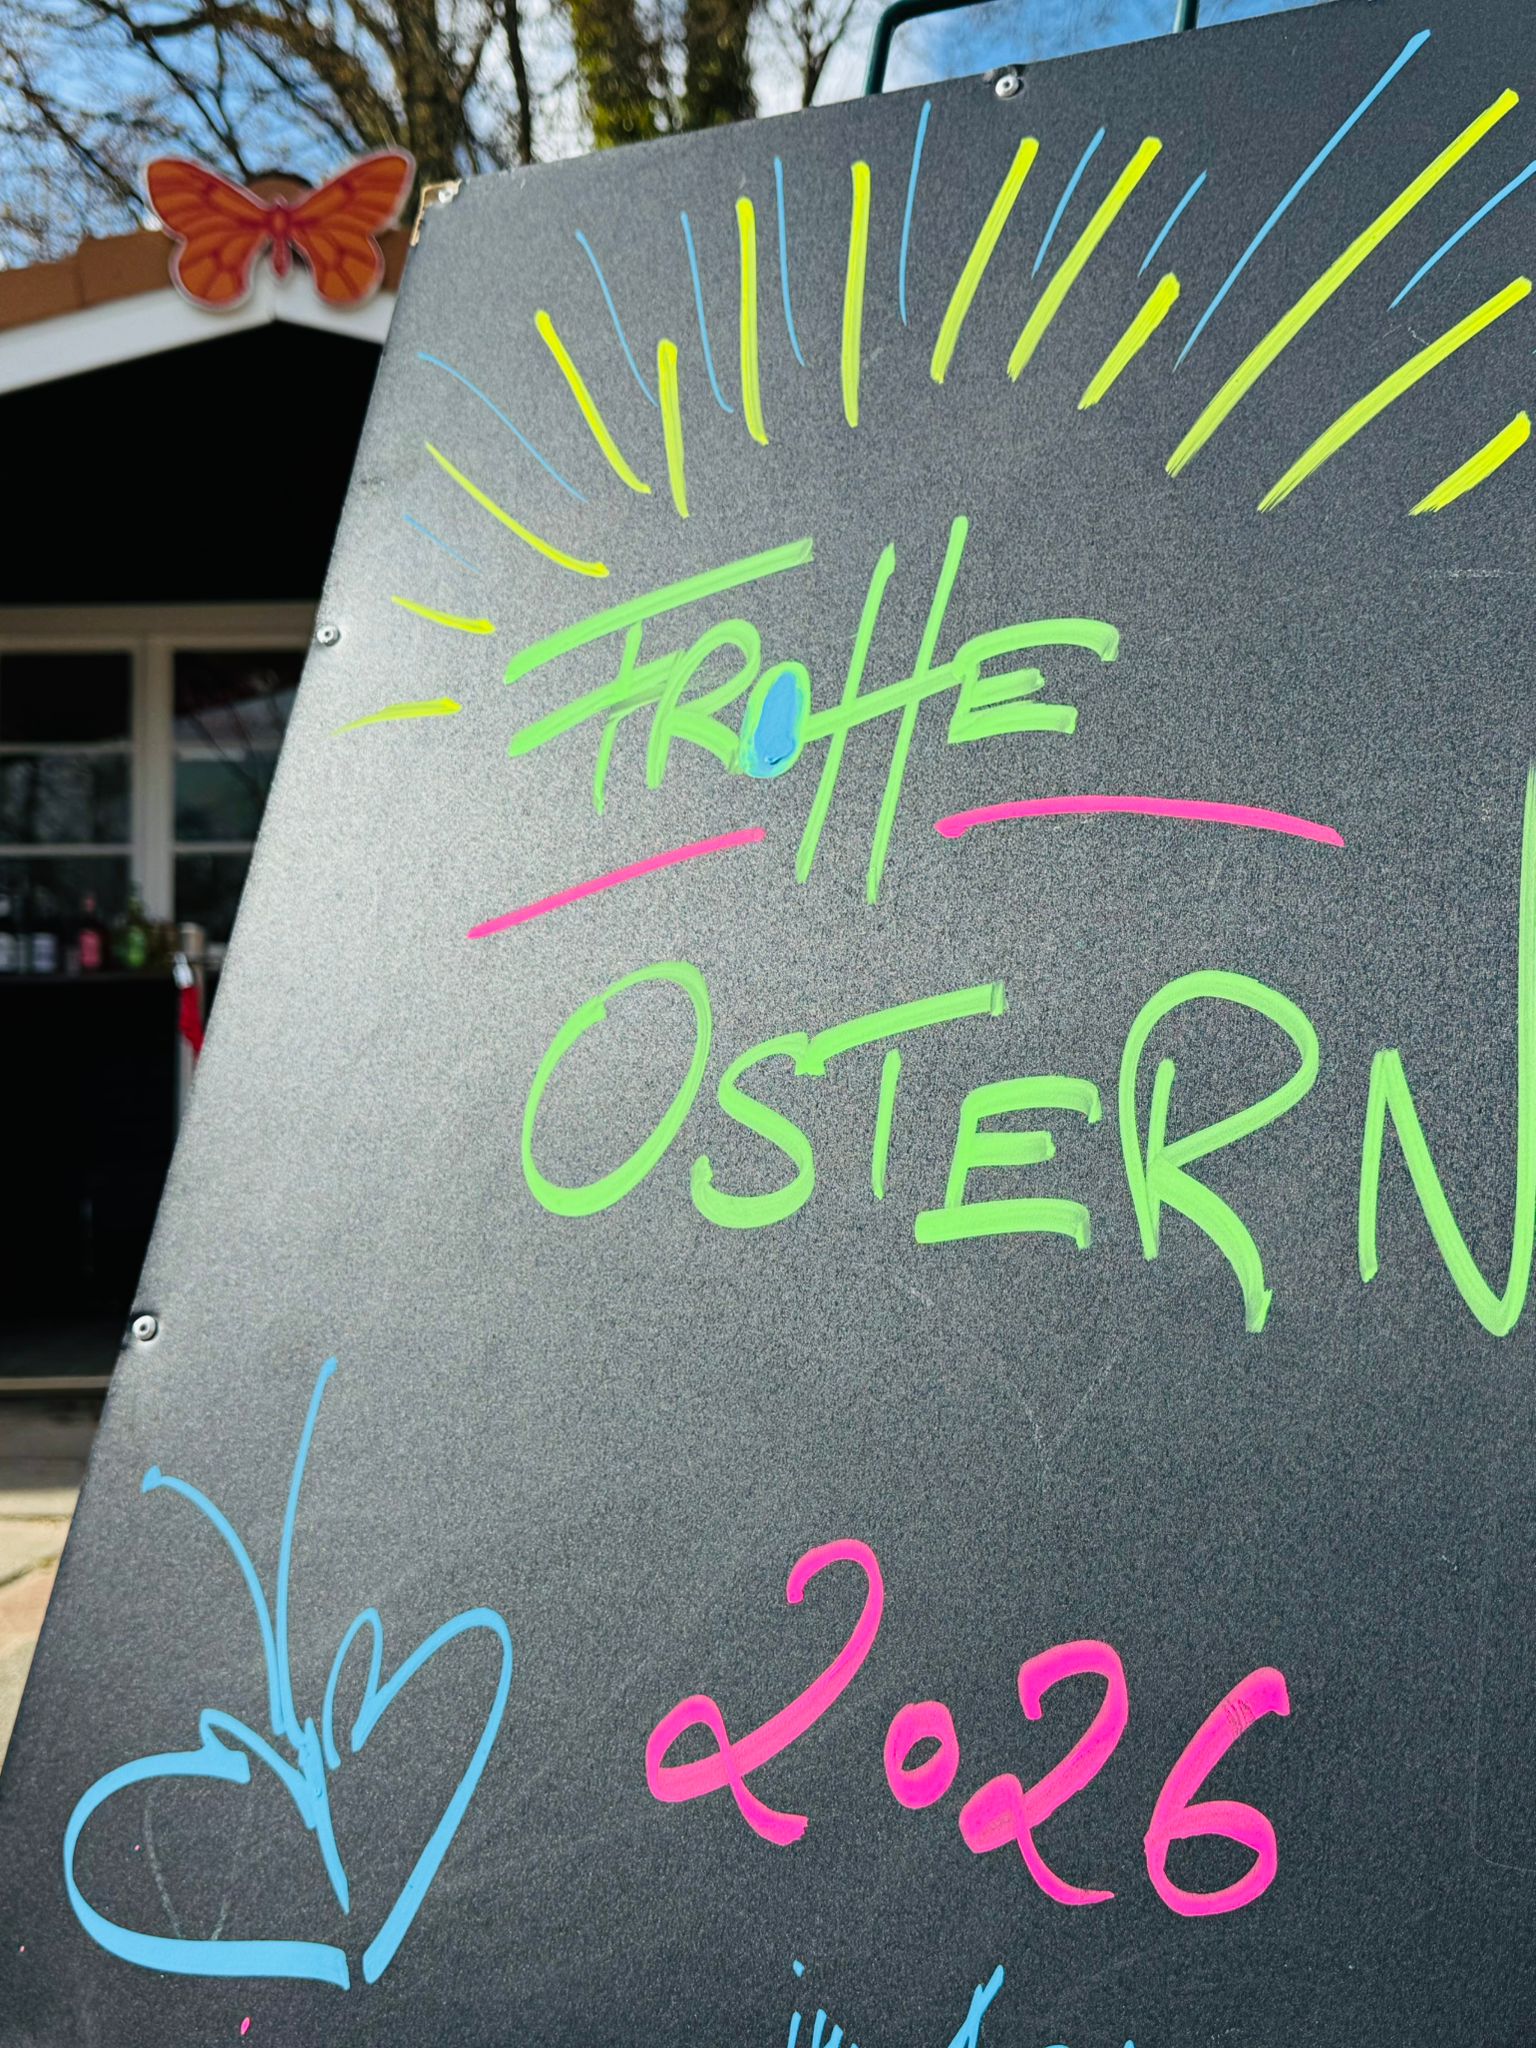 FROHE
OSTERN
2026